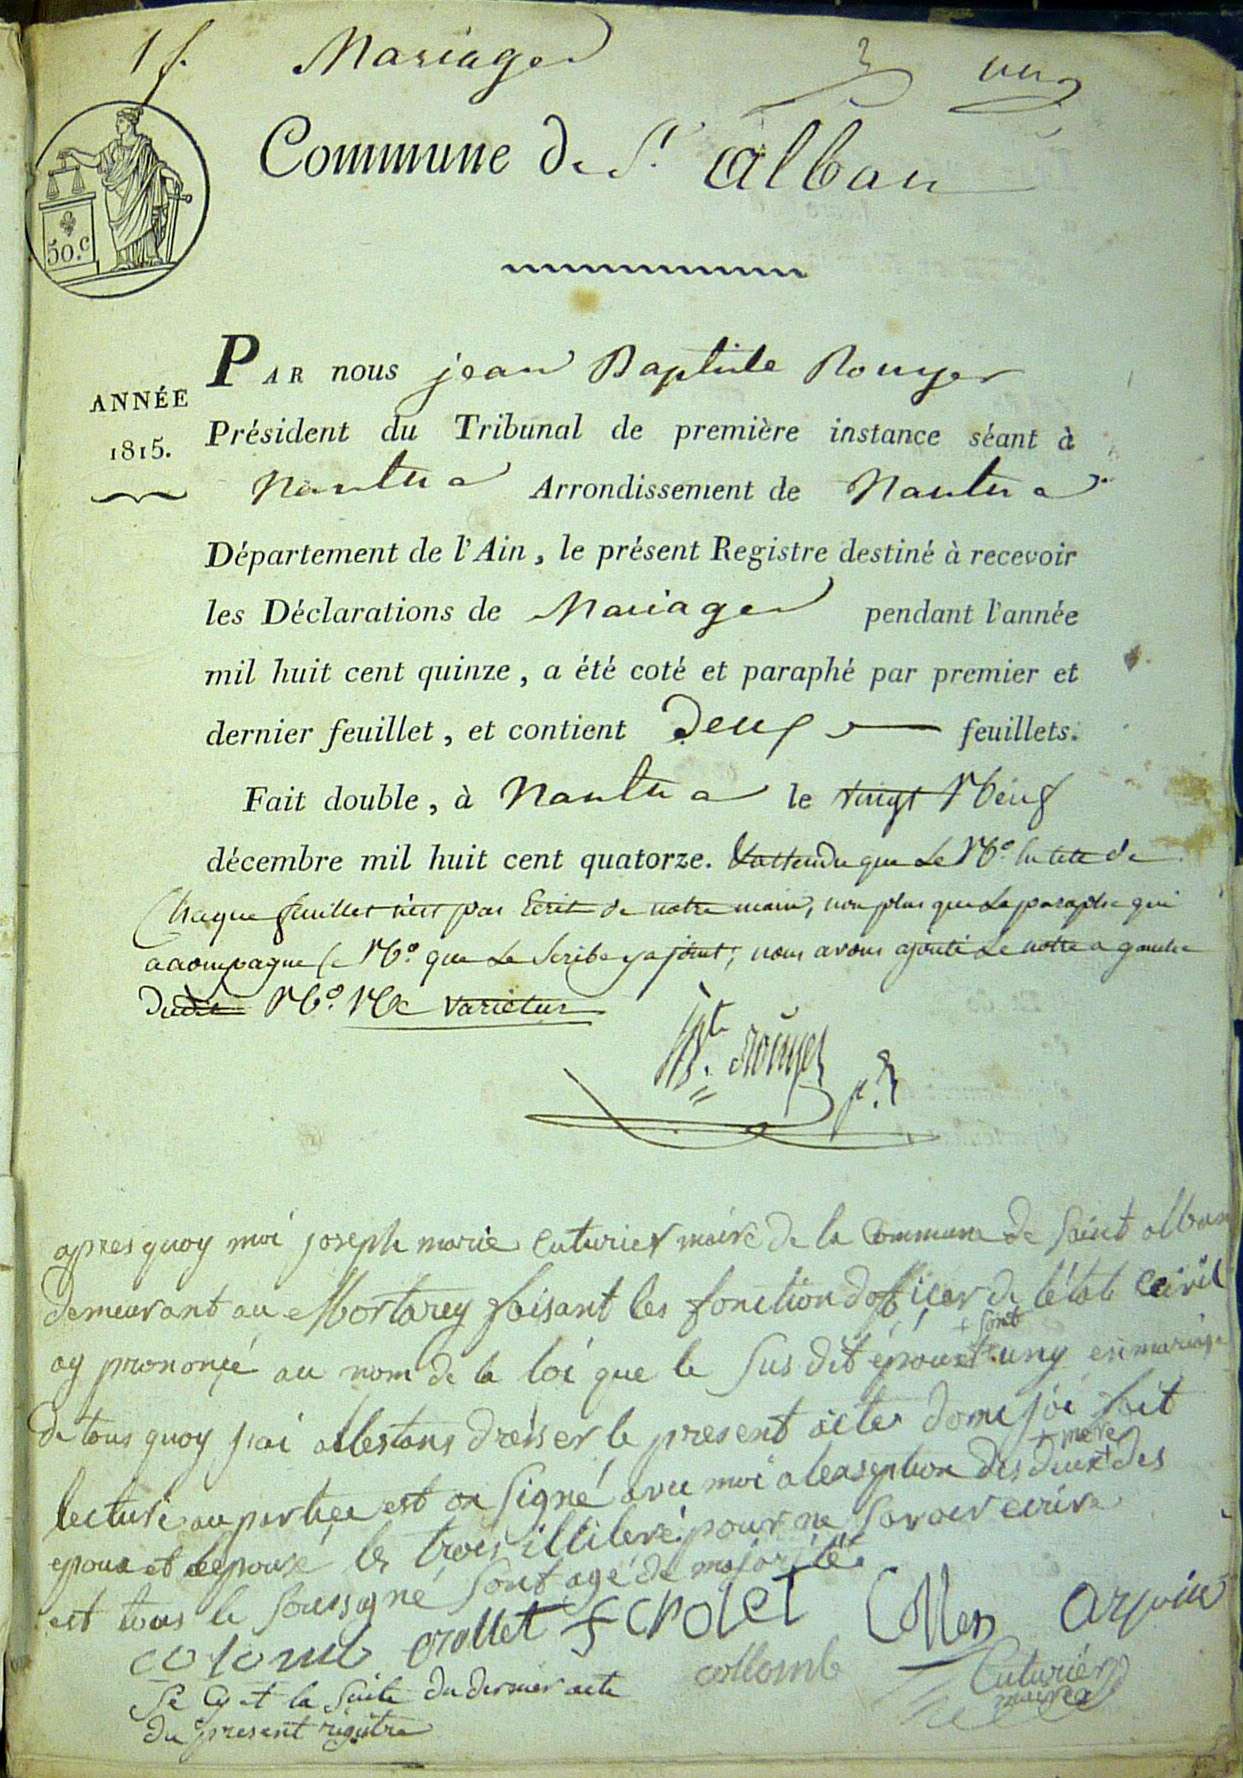 1 f. Mariages un
Commune de St alban
50.c
PAR nous jean Baptiste Rouyer
ANNÉE
1815.
Président du Tribunal de première instance séant à
Nantua Arrondissement de Nantua
Département de l'Ain, le présent Registre destiné à recevoir
les Déclarations de Mariages pendant l'année
mil huit cent quinze, a été coté et paraphé par premier et
dernier feuillet, et contient Deux feuillets.
Fait double, à Nantua le vingt Neuf
décembre mil huit cent quatorze. Et attendu que Le No. en tete de
Chaque feuillet n'est pas Ecrit de notre main, non plus que Le paraphe qui
accompagne le No. que Le Scribe y a joint, nous avons ajouté Le notre a gauche
dudit No. Ne varietur
Bte. Rouyer p.
apres quoy moi joseph marie Cuturier maire de la Commune de Saint alban
demeurant au Mortarey faisant les fonction dofficier de létat Ceivil
+ sont
ay prononçé au nom de la loi que le Sus dit épouxt uny en mariage
de tous quoy jiai dresser le present acte dont j'ai fait
+ mere
lecture au partiee est on Signé avec moi a lexseption des deux+ des
epoux et de lepouse les trois illiteré pour ne Savoir ecrire
est tous le Soussigné Sont agé de majorité
colomb crollet f crolet Collet arpin
collomb Cuturier
maire
Se Cy et la Suite du dernier acte
du present registre